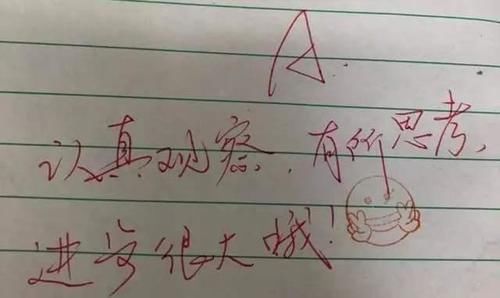 A
认真观察,有所思考,
进步很大哦!